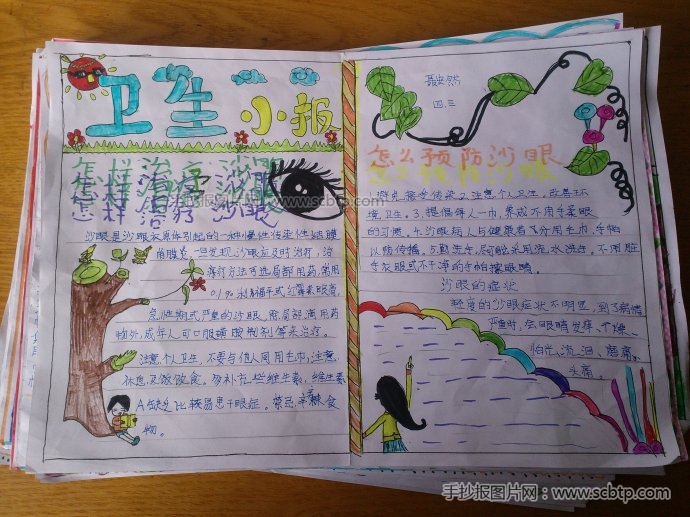 卫生小报
怎样治疗沙眼
怎样治疗沙眼
怎样治疗沙眼
沙眼是沙眼衣原体引起的一种慢性传染性结膜
角膜炎一旦发现沙眼应及时治疗,治
疗方法可选局部用药,常用
0.1%利福平或红霉素眼膏,
急性期或严重的沙眼,除局部滴用药
物外,成年人可口服 制剂等来治疗。
注意个人卫生,不要与他人同用毛巾,注意
休息,及饮食。多补充些维生素,维生素
A缺乏比较易患干眼症。禁忌辛辣食
物。
聂 然
四.三
怎么预防沙眼
怎么预防沙眼
1避免接触传染。2.注意个人卫生,改善环
境卫生。3.提倡每人一巾,养成不用手柔眼
的习惯。4.沙眼病人与健康者要分用毛巾,手帕
以防传播。5勤洗手,尽可能采用流水洗手。不用脏
手衣服或不干净的手帕擦眼睛。
沙眼的症状
轻度的沙眼症状不明显,到了病情
严重时,会眼睛发痒、干燥、
怕光、流泪、磨痛、
头痛。
手抄报图片网:www.scbtp.com